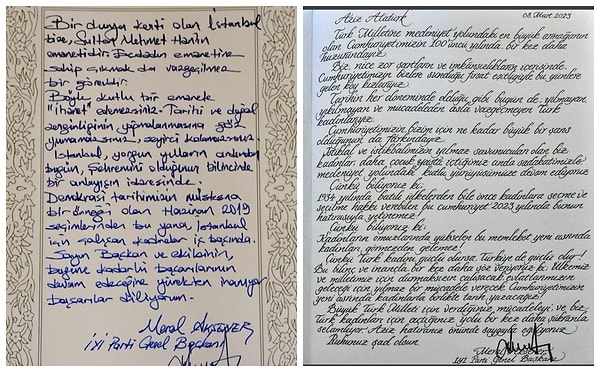 Bir dünya kenti olan İstanbul
bize, Sultan Mehmet Hanın
emanetidir. Ecdadın emanetine
sahip çıkmak da vazgeçilmez
bir görevdir.
Böyle kutlu bir emanete
"ihanet" edemezsiniz. Tarihi ve doğal
zenginliğinin yıpralanmasına göz
yumamazsınız, seyirci kalamazsınız
İstanbul, yorgun yılların ardından
bugün, Şehremini olduğunun bilincinde
bir anlayışın idaresinde.
Demokrasi tarihimizin müstesna
bir örneği olan Haziran 2019
seçimlerinden bu yana, İstanbul
için çalışan kadrolar iş başında.
Sayın Başkan ve ekibinin,
bugüne kadarki başarılarının
devam edeceğine yürekten inanıyor
başarılar diliyorum.
Meral AKŞENER
İYİ Parti Genel Başkanı
Aziz Atatürk 08 Mart 2023
Türk Milletine medeniyet yolundaki en büyük armağanın
olan Cumhuriyetimizin 100'üncü yılında bir kez daha
huzurundayız.
Biz nice zor şartların ve imkânsızlıkların içerisinde,
Cumhuriyetimizin bizlere sunduğu fırsat eşitliğiyle bu günlere
gelen köy kızlarıyız.
Tarihin her döneminde olduğu gibi bugün de; yılmayan,
yıkılmayan ve mücadeleden asla vazgeçmeyen Türk
kadınlarıyız.
Cumhuriyetimizin bizim için ne kadar büyük bir şans
olduğunun da farkındayız.
İstiklal ve istikbalimizin yılmaz savunucuları olan biz
kadınlar daha, çocuk yaşta içtiğimiz anda sadakatimizle
medeniyet yolundaki kutlu yürüyüşümüze devam ediyoruz.
Çünkü biliyoruz ki:
1934 yılında batılı ülkelerden bile önce kadınlara seçme ve
seçilme hakkı verebilen bu cumhuriyet 2023 yılında bunun
hatırasıyla yetinemez!
Çünkü biliyoruz ki:
Kadınların omuzlarında yükselen bu memleket yeni asrında
kadınları, görmezden gelemez!
Çünkü Türk kadını güçlü olursa, Türkiye de güçlü olur!
Bu bilinç ve inançla bir kez daha söz veriyoruz ki: Ülkemiz
ve milletimiz için durmaksızın çalışacak evlatlarımızın
geleceği için yılmaz bir mücadele verecek Cumhuriyetimizin
yeni asrında kadınlarla birlikte tarih yazacağız!
Büyük Türk Milleti için verdiğiniz mücadeleyi ve biz
Türk kadınları için açtığınız yolu bir kez daha şükranla
selamlıyor Aziz hatıranız önünde saygıyla eğiliyoruz
Ruhunuz şad olsun.
Meral
İYİ Parti Genel Başkanı